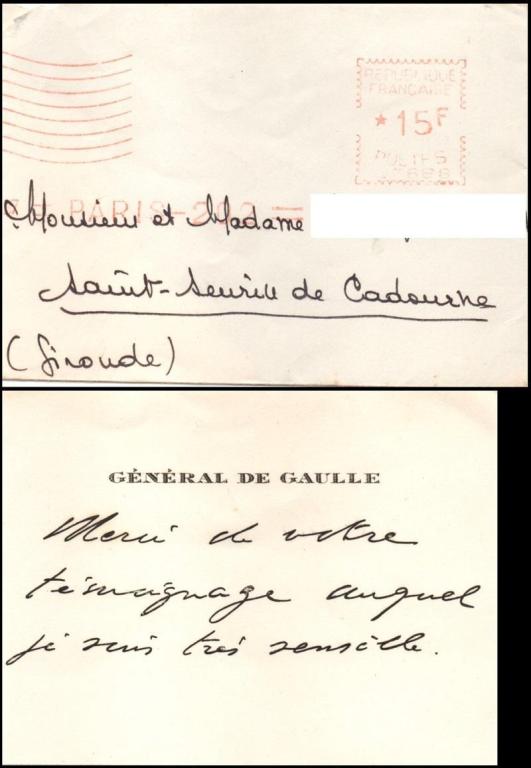 REPUBLIQUE
FRANÇAISE
★ 15F
POSTES
PARIS-202
Monsieur et Madame
Saint-Seurin de Cadourne
(Gironde)
GÉNÉRAL DE GAULLE
Merci de votre
témoignage auquel
je suis très sensible.